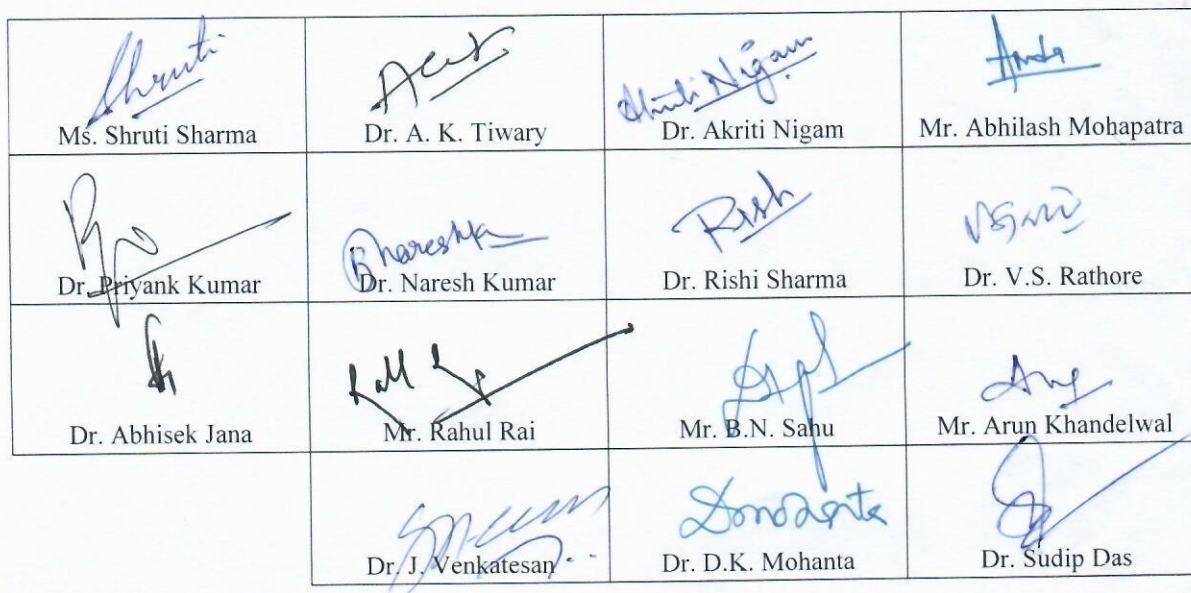 Shruti
Ms. Shruti Sharma
Dr. A. K. Tiwary
Akriti Nigam
Dr. Akriti Nigam
Mr. Abhilash Mohapatra
Dr. Priyank Kumar
Dr. Naresh Kumar
Rish
Dr. Rishi Sharma
Dr. V.S. Rathore
Dr. Abhisek Jana
Mr. Rahul Rai
Mr. B.N. Sahu
Mr. Arun Khandelwal
Dr. J. Venkatesan
Dr. D.K. Mohanta
Dr. Sudip Das